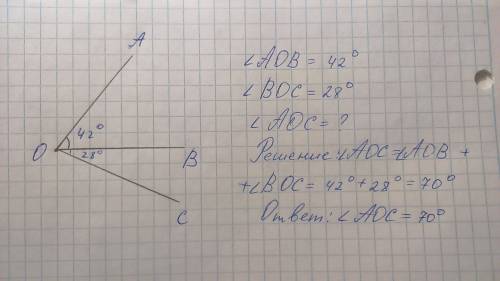 A
42°
O
28°
B
C
∠AOB = 42°
∠BOC = 28°
∠AOC = ?
Решение: ∠AOC = ∠AOB +
+∠BOC = 42° + 28° = 70°
Ответ: ∠AOC = 70°